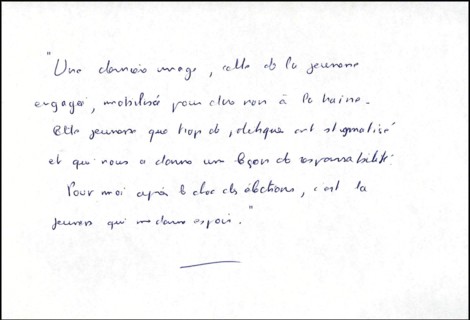 "Une dernière image, celle de la jeunesse
engagée, mobilisée pour dire non à la haine.
Cette jeunesse que trop de politiques ont stigmatisé
et qui nous a donné une leçon de responsabilité.
Pour moi après le choc des élections, c'est la
jeunesse qui me donne espoir."